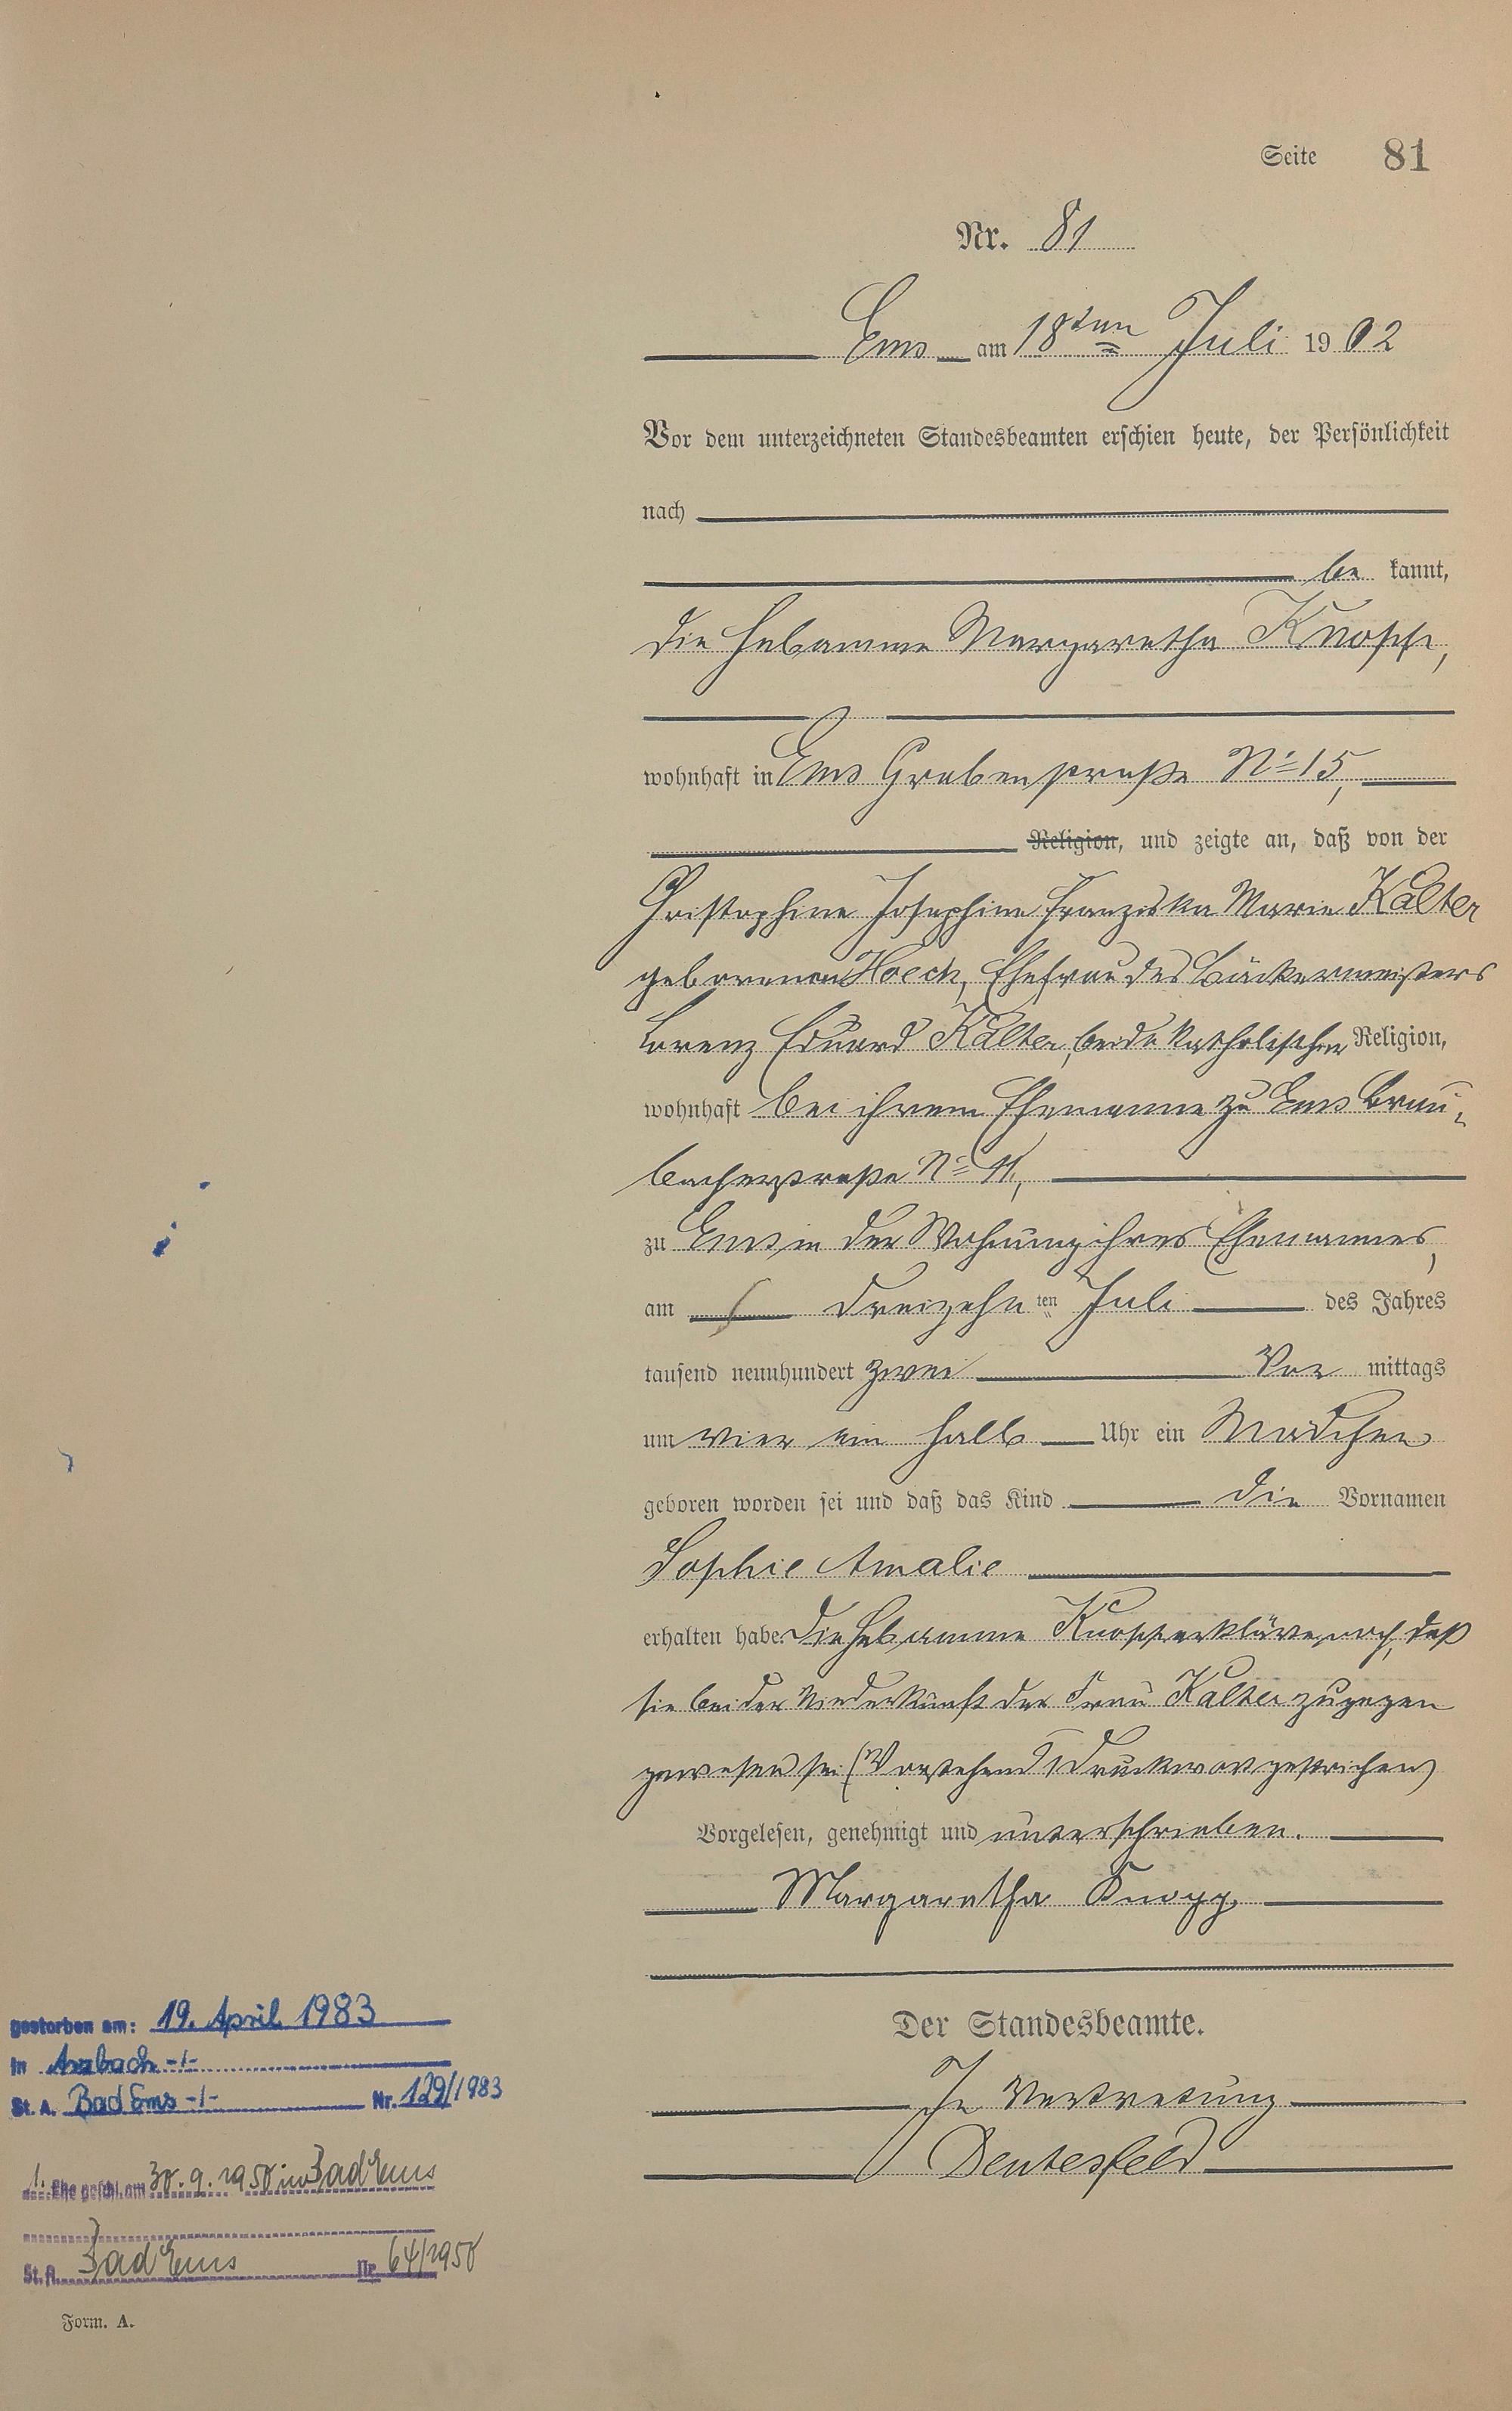 Seite 81
Nr. 81
Ems am 18ten Juli 1902
Vor dem unterzeichneten Standesbeamten erschien heute, der Persönlichkeit
nach
be kannt,
die Hebamme Margaretha Knopp,
wohnhaft in Ems Grabenstraße No 15,
Religion, und zeigte an, daß von der
Christophine Josephine Franziska Marie Kalter
geborenen Hoech, Ehefrau des Bäckermeisters
Lorenz Eduard Kalter, beide katholischer Religion,
wohnhaft bei ihrem Ehemanne zu Ems Brau-
bacherstraße No 11,
zu Ems in der Wohnung ihres Ehemannes,
am dreizehn ten Juli des Jahres
tausend neunhundert zwei Vor mittags
um vier ein halb Uhr ein Mädchen
geboren worden sei und daß das Kind die Vornamen
Sophie Amalie
erhalten habe. Die Hebamme Knopp erklärte noch, daß
sie bei der Niederkunft der Frau Kalter zugegen
gewesen sei (Vorstehend 1 Druckwort gestrichen)
Vorgelesen, genehmigt und unterschrieben.
Margaretha Knopp
Der Standesbeamte.
In Vertretung
Deutesfeld
gestorben am: 19. April 1983
in Arzbach -/-
St. A. Bad Ems -/- Nr. 129/1983
1. Ehe geschl. am 30.9.1950 in Bad Ems
St. A. Bad Ems Nr 64/1950
Form. A.